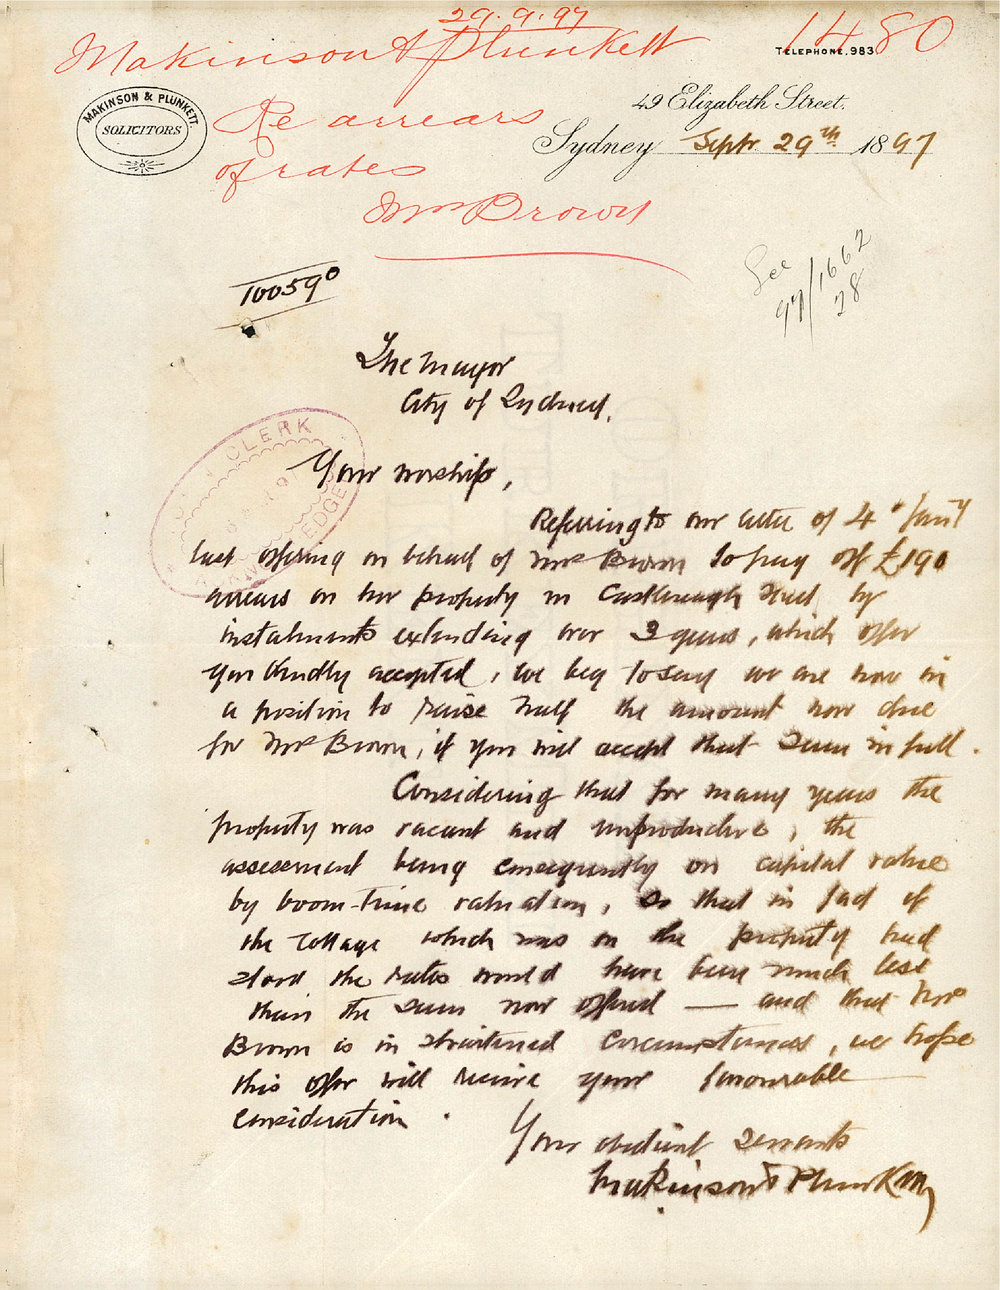 29.9.97
1480
Makinson & Plunkett
TELEPHONE. 983
MAKINSON & PLUNKETT.
SOLICITORS
49 Elizabeth Street.
Re arrears
Sydney Septr 29th 1897
of rates
Mrs Brown
See
97/1662
28
10059
The Mayor
City of Sydney.
CLERK
Your worship,
Referring to our letter of 4th Jany
last offering on behalf of Mrs Brown to pay off £190
arrears on her property in Castlereagh Street by
instalments extending over 3 years, which offer
you kindly accepted, we beg to say we are now in
a position to raise half the amount now due
for Mrs Brown, if you will accept that sum in full.
Considering that for many years the
property was vacant and unproductive, the
assessment being consequently on capital value
by boom-time valuation, so that in fact if
the cottage which was on the property had
stood the rates would have been much less
than the sum now offered — and that Mrs
Brown is in straitened circumstances, we hope
this offer will receive your favourable
consideration.
Your obedient Servants
Makinson & Plunkett